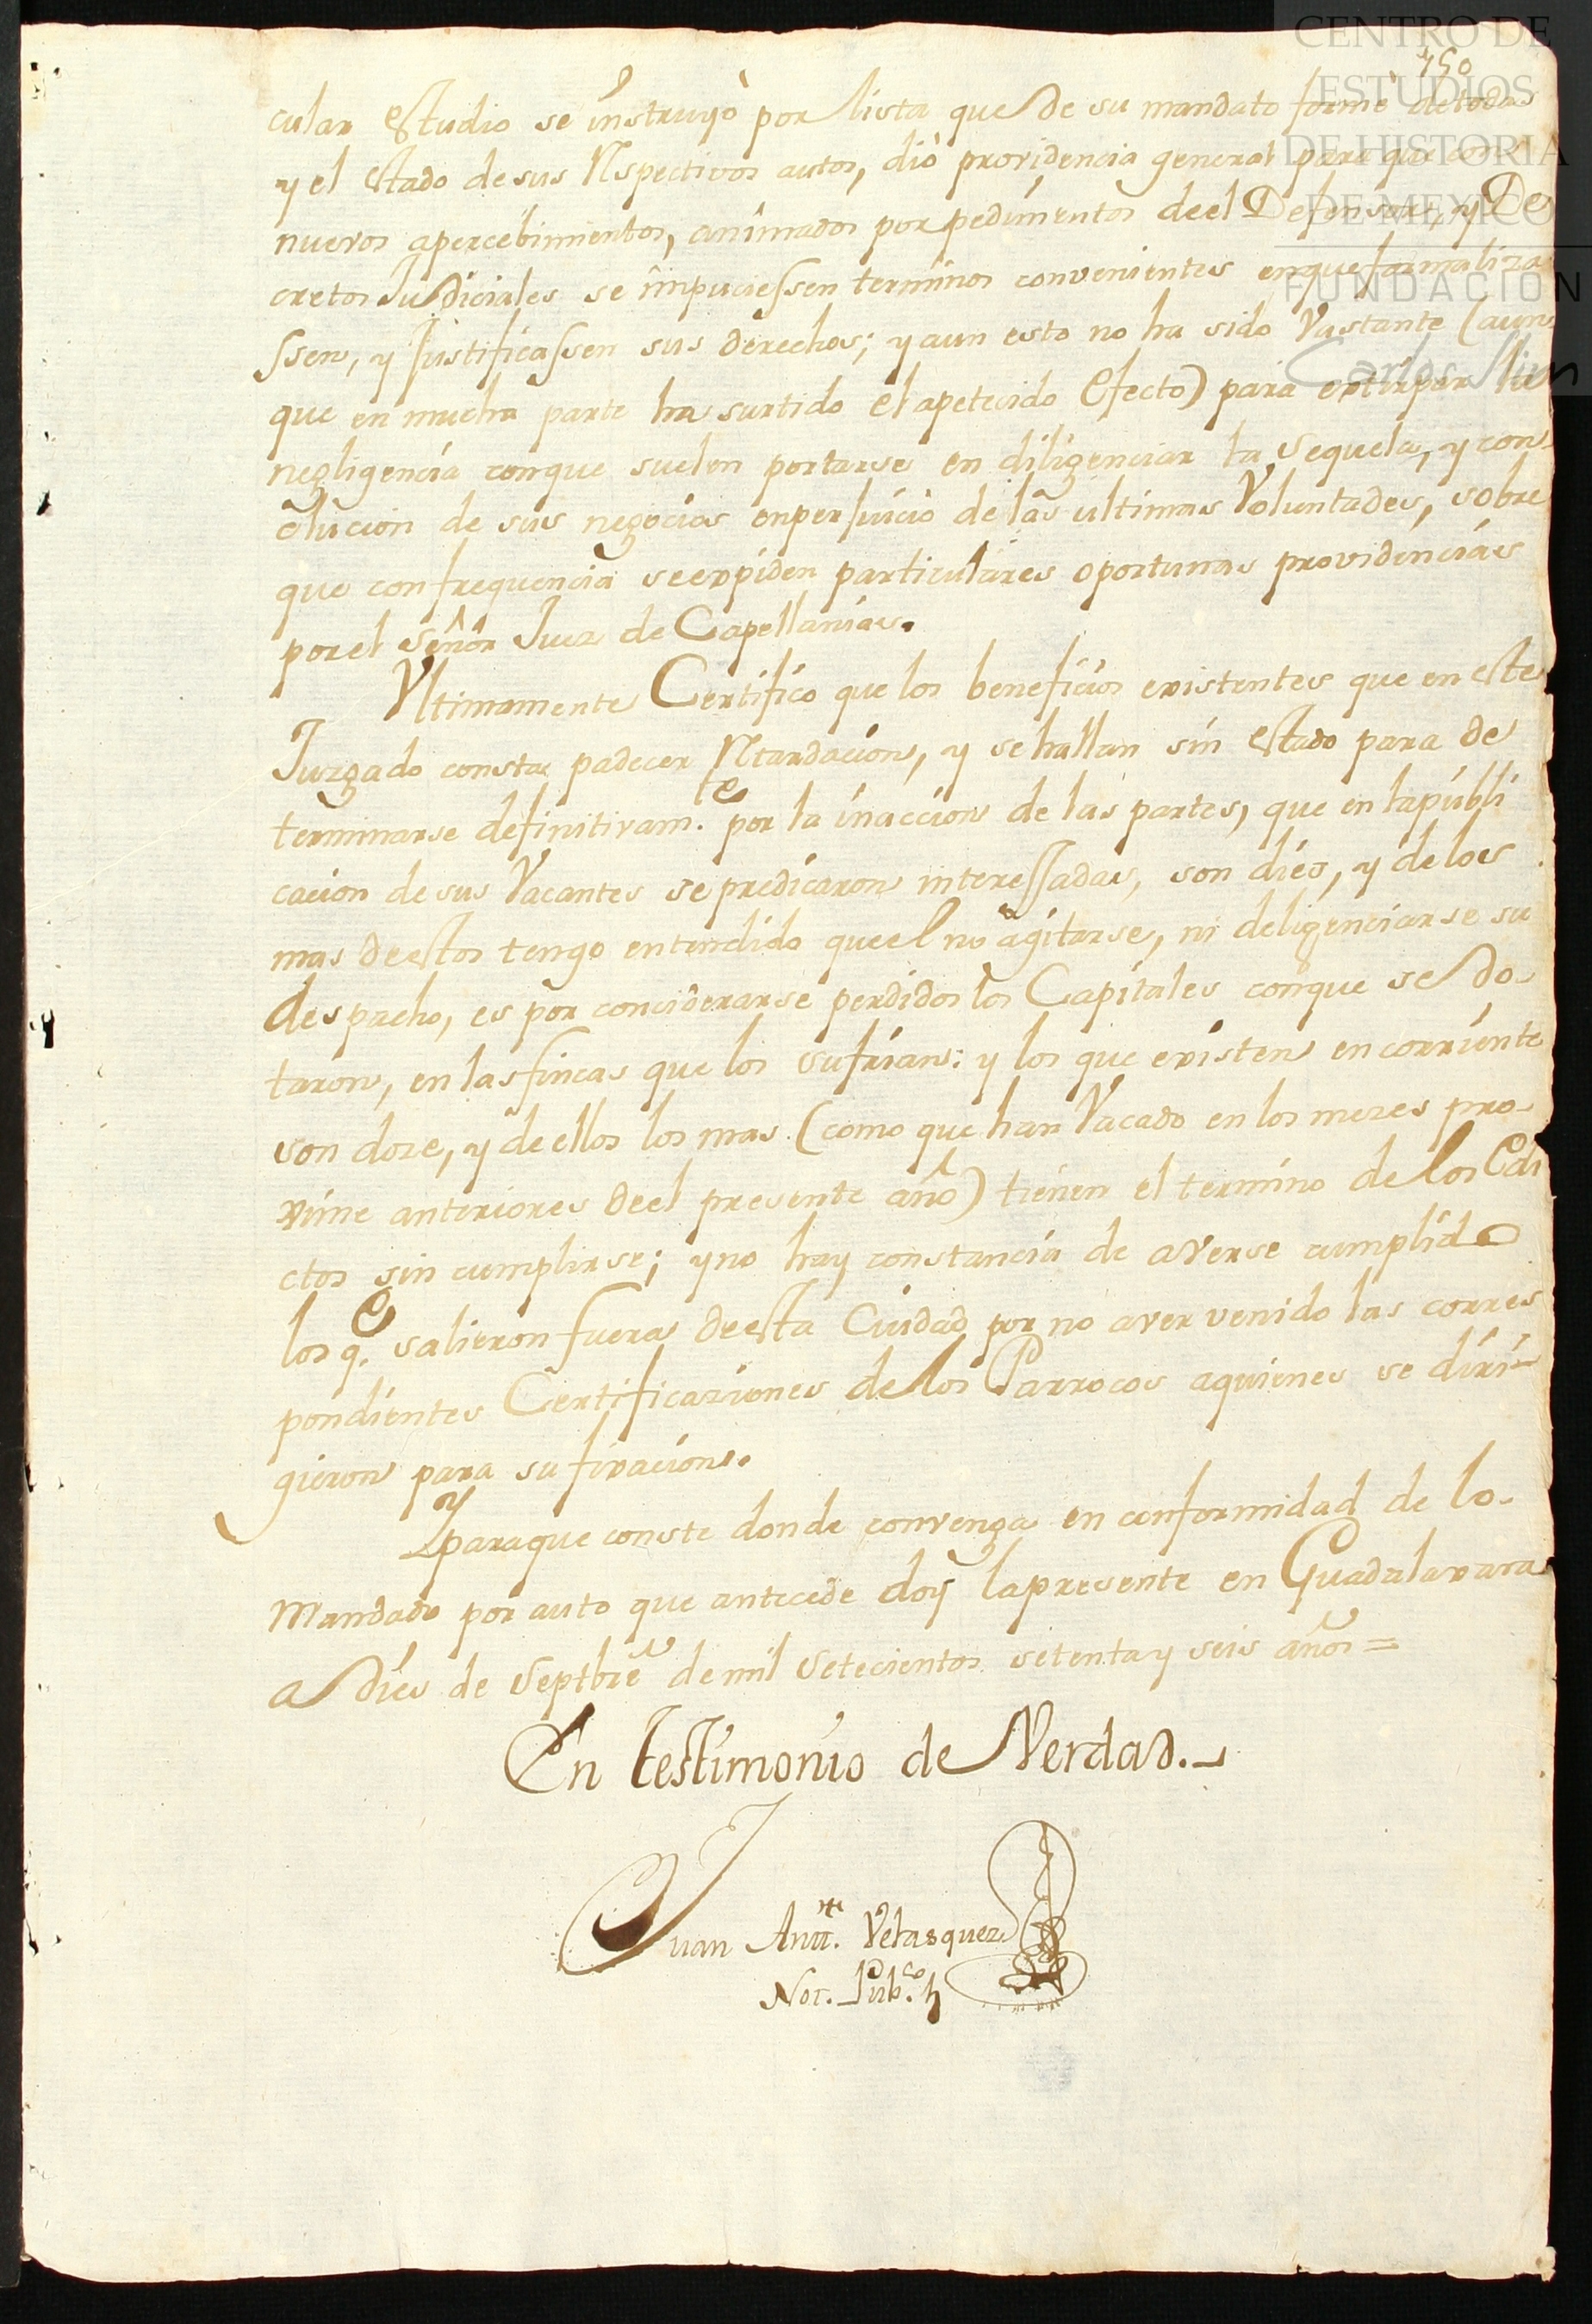 CENTRO DE
ESTUDIOS
DE HISTORIA
DE MEXICO
FUNDACION
Carlos Slim
cular estudio se instruyò por lista que de su mandato formè de todas
y el estado de sus Rspectivos autos, diò providencia general para que con
nuevos apercebimientos, animados por pedimentos de el Defensor, y De
cretos Judiciales se impuciessen terminos convenientes en que formaliza
ssen, y justificassen sus derechos; y aun esto no ha sido Vastante (aun
que en mucha parte ha surtido el apetecido efecto) para extirpar la
negligencia con que suelen portarse en diligenciar la sequela, y con
clucion de sus negocios en perjuicio de las ultimas Voluntades, sobre
que con frequencia se expiden particulares oportunas providencias
por el señor Juez de Capellanias.
Ultimamente Certifico que los beneficios existentes que en este
Juzgado consta padecer Rtardacion, y se hallan sin estado para de
terminarse definitivam.te por la inaccion de las partes, que en la publi
cacion de sus Vacantes se predicaron interessadas, son dies, y de los
mas de estos tengo entendido que el no agitarse, ni deligenciarse su
despacho, es por conciderarse perdidos los Capitales con que se do-
taron, en las fincas que los sufrian: y los que existen en corriente
son doze, y de ellos los mas (como que han Vacado en los mezes pro-
xime anteriores de el presente año) tienen el termino de los Edi
ctos sin cumplirse; y no hay constancia de averse cumplido
los q.e salieron fuera de esta Ciudad por no aver venido las corres
pondientes Certificaziones de los Parrocos a quienes se diri-
gieron para su fixacion.
Y para que conste donde convenga en conformidad de lo-
mandado por auto que antecede doy la presente en Guadalaxara
a dies de Septbrẽ de mil setecientos setenta y seis años =
En testimonio de Verdad.
Juan Antt.o Velasquez
Not. Pub.co